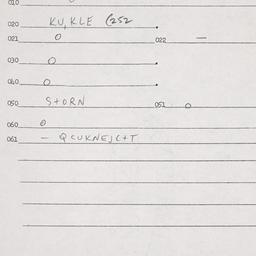 010
020 KU,KLE (252
021 0 022 —
030 0
040 0
050 STORN 051 0
060 0
061 – QCUKNEJC+T